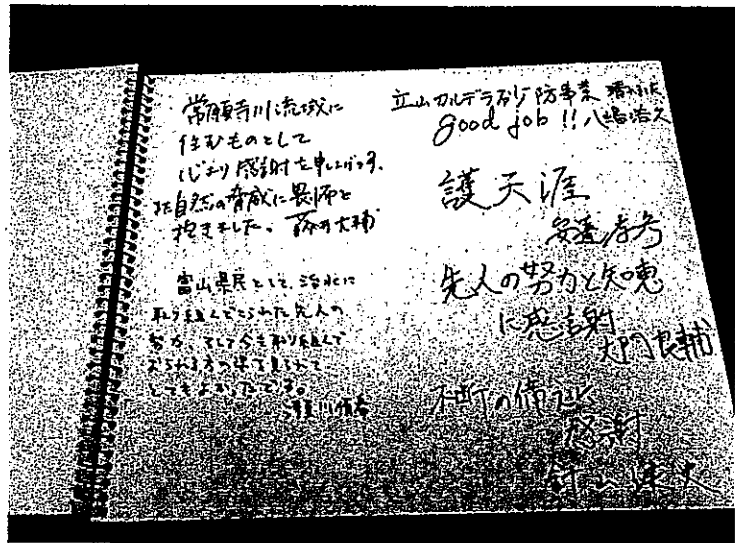 常願寺川流域に
住むものとして
心より感謝を申し上げます。
又自然の脅威に畏怖を
抱きました。 藤井大輔
富山県民として、治水に
取り組んでこられた先人の
努力、そして今も取り組んで
おられる方の
とてもよかったです。
立山カルデラ砂防事業
good job !! 八嶋浩久
護天涯
先人の努力と知恵
に感謝
大門良輔
不断の備えに
感謝
針山健史